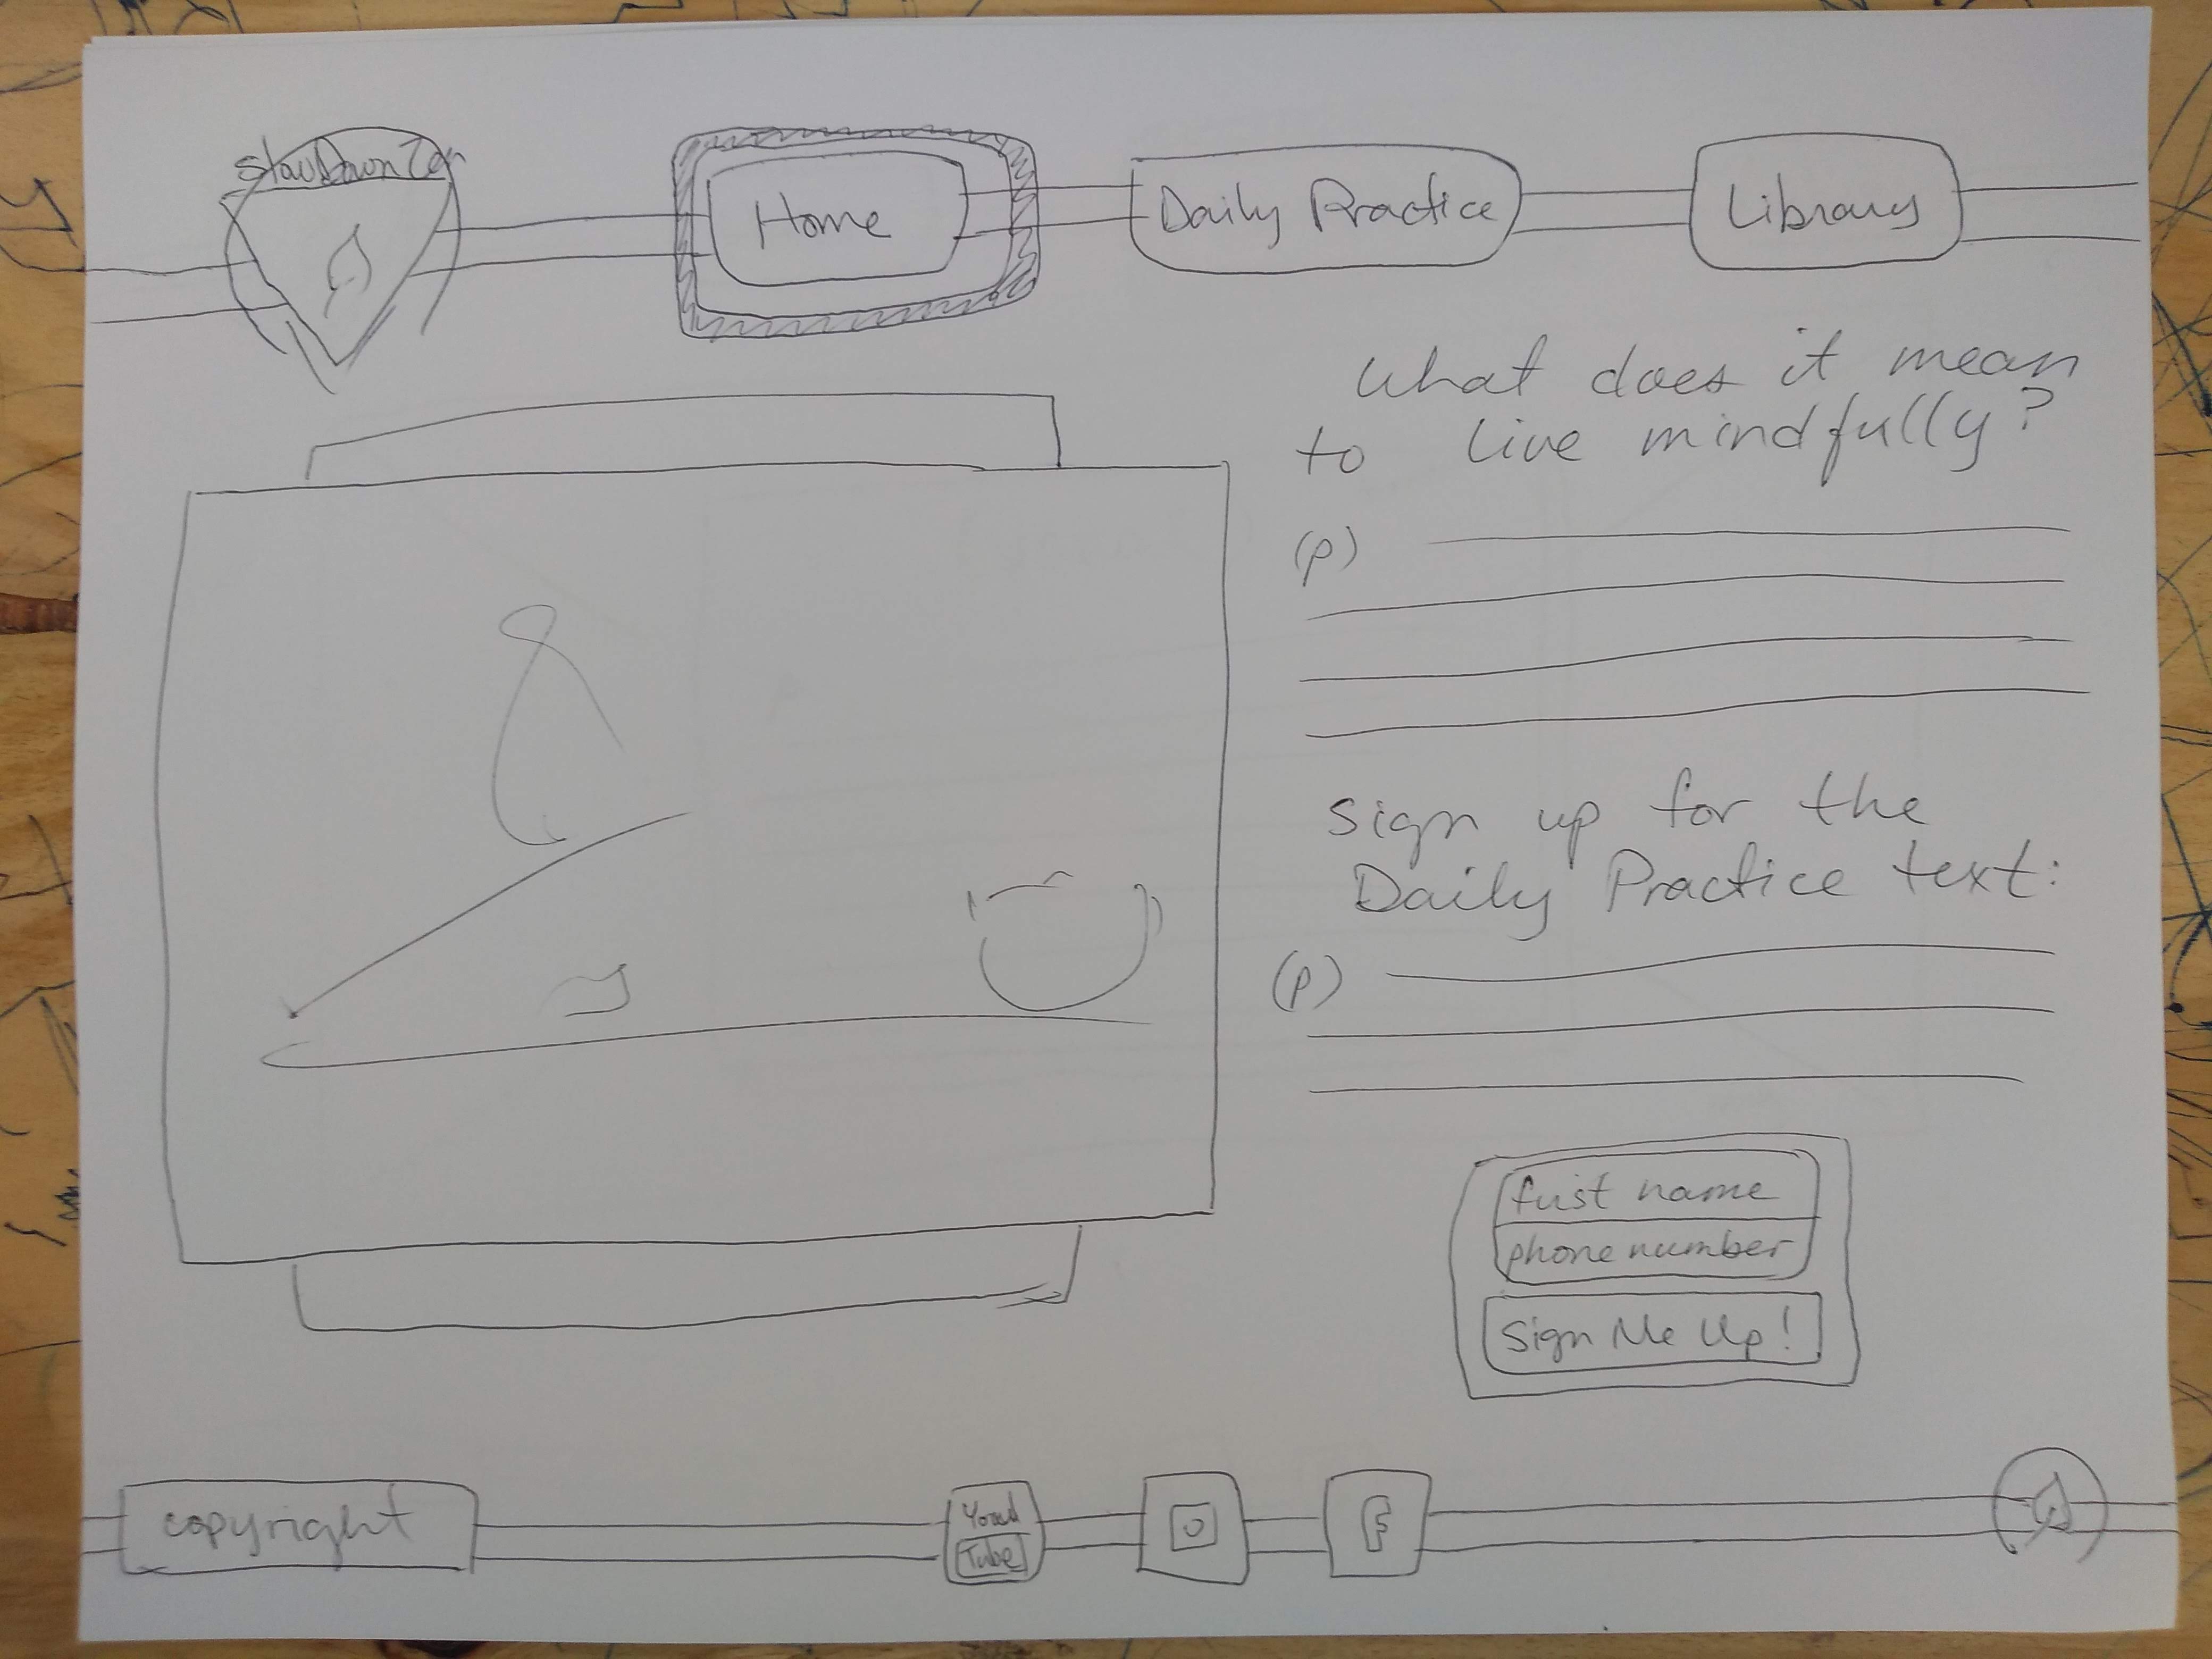 Home
Daily Practice
Library
What does it mean
to live mindfully?
(p)
Sign up for the
Daily Practice text:
(p)
first name
phone number
Sign Me Up!
copyright
You
Tube
f